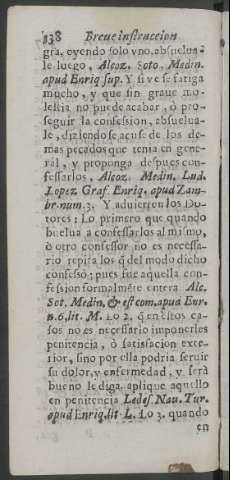 138 Breue instruccion
gra, oyendo solo vno, absuelua-
le luego, Alcoz. Soto, Medin.
apud Enriq sup. Y si vè se fatiga
mucho, y que sin graue mo-
lestia no puede acabar, ò pro-
seguir la confession, absuelua-
le, diziendo se acuse de los de-
mas pecados que tenia en gene-
ral, y proponga despues con-
fessarlos, Alcoz. Medin. Lud.
Lopez Graf. Enriq. apud Zam-
br. num. 3. Y aduierten los Do-
tores: Lo primero que quando
buelua a confessarlos al mismo,
ò otro confessor no es necessa-
rio repita los q̃ del modo dicho
confessò; pues fue aquella con-
fession formalmẽte entera Alc.
Sot. Medin. & est com. apud Eur.
n. 6. lit. M. Lo 2. q̃ en estos ca-
sos no es necessario imponerles
penitencia, ò satisfacion exte-
rior, sino por ella podria seruir
su dolor, y enfermedad, y serà
bueno le diga, aplique aquello
en penitencia Ledes. Nau. Tur.
apud Enriq. lit. L. Lo 3. quando
en